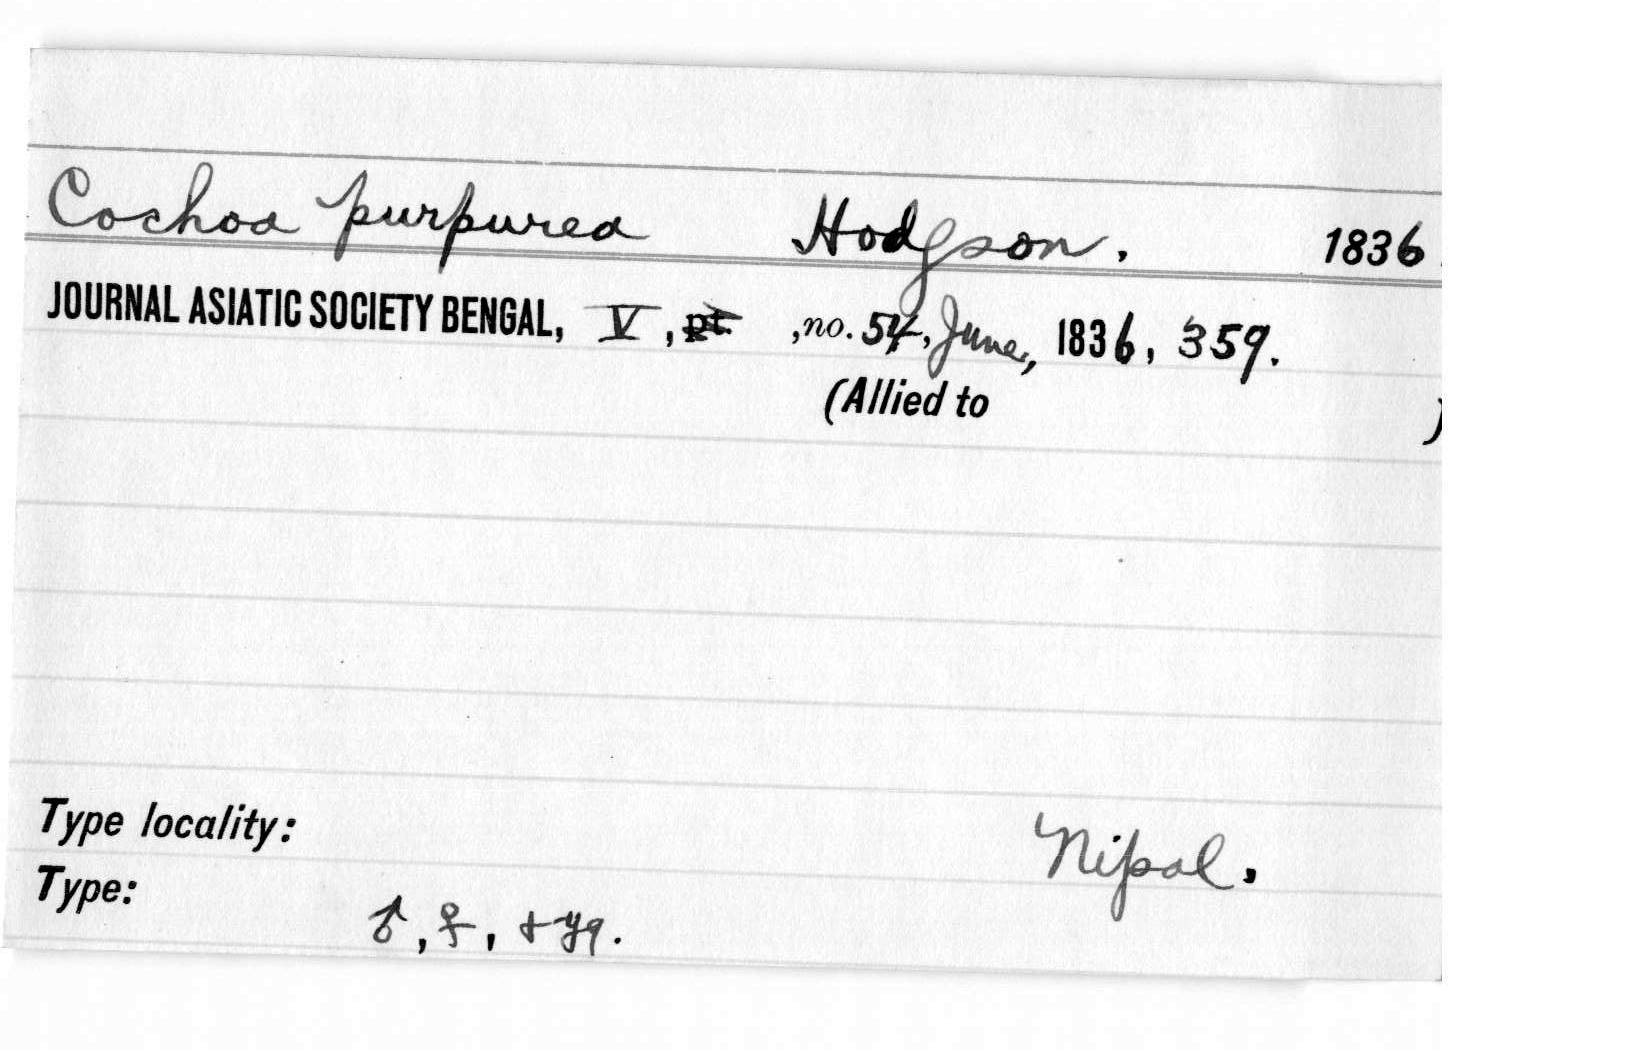 Cochoa purpurea Hodgson. 1836.
JOURNAL ASIATIC SOCIETY BENGAL, V, pt. , no. 54, June, 1836, 359.
(Allied to )
Type locality: Nipal.
Type: ♂, ♀, + yg.